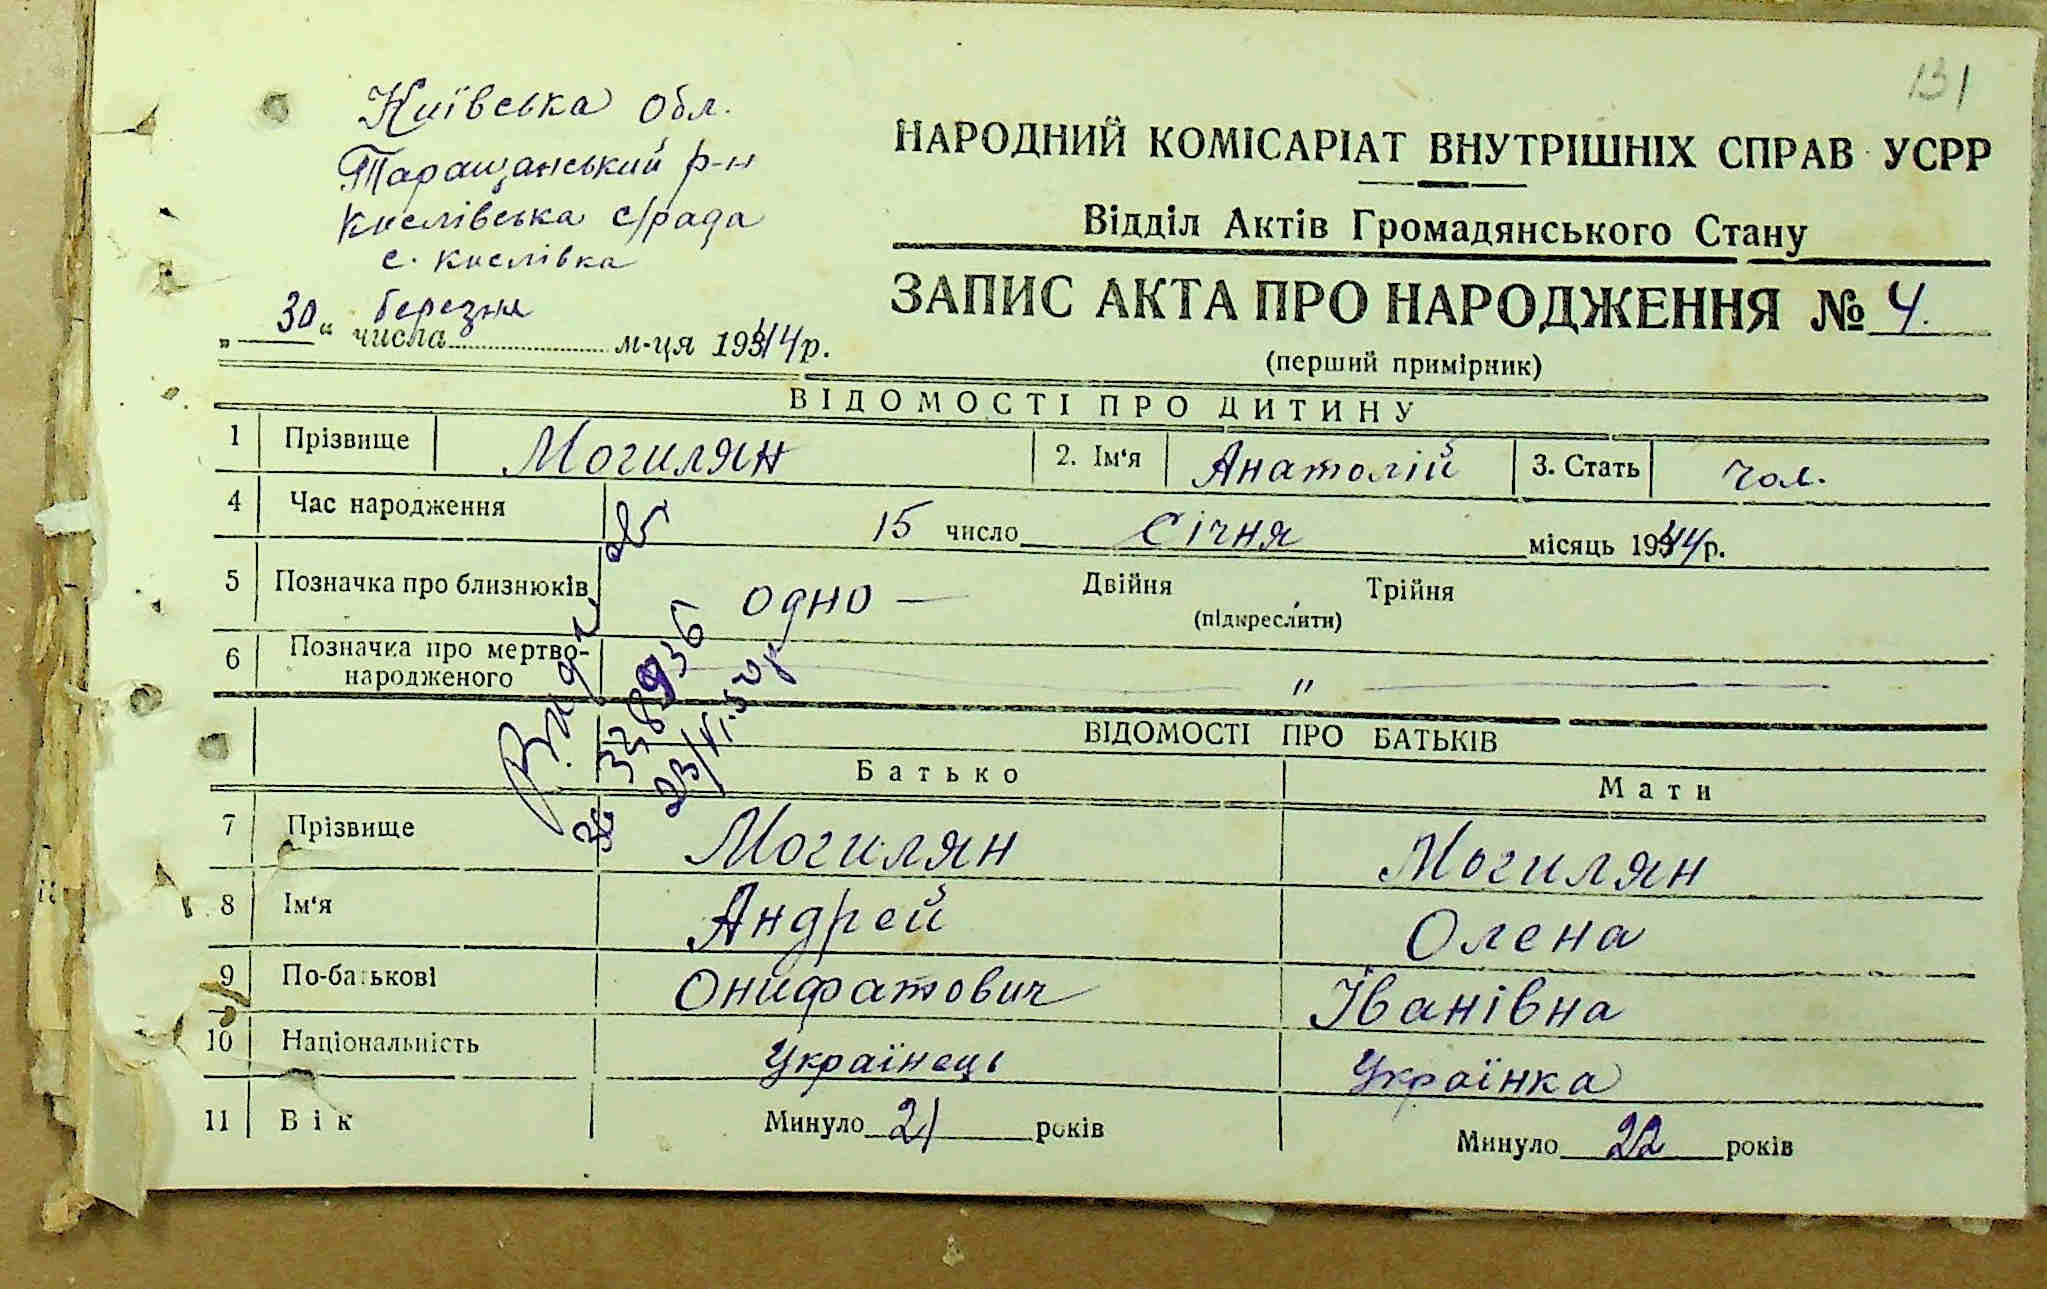 131
Київська обл.
Таращанський р-н
Кислівська с/рада
с. Кислівка
„30“ числа березня м-ця 1944 р.
НАРОДНИЙ КОМІСАРІАТ ВНУТРІШНІХ СПРАВ УСРР
Відділ Актів Громадянського Стану
ЗАПИС АКТА ПРО НАРОДЖЕННЯ № 4.
(перший примірник)
ВІДОМОСТІ ПРО ДИТИНУ
1 Прізвище Могилян 2. Ім'я Анатолій 3. Стать чол.
4 Час народження 15 число Січня місяць 1944 р.
5 Позначка про близнюків одно — Двійня Трійня
(підкреслити)
6 Позначка про мертво-
народженого — " —
ВІДОМОСТІ ПРО БАТЬКІВ
Батько Мати
7 Прізвище Могилян Могилян
8 Ім'я Андрей Олена
9 По-батькові Онифатович Іванівна
10 Національність Українець Українка
11 Вік Минуло 21 років Минуло 22 років